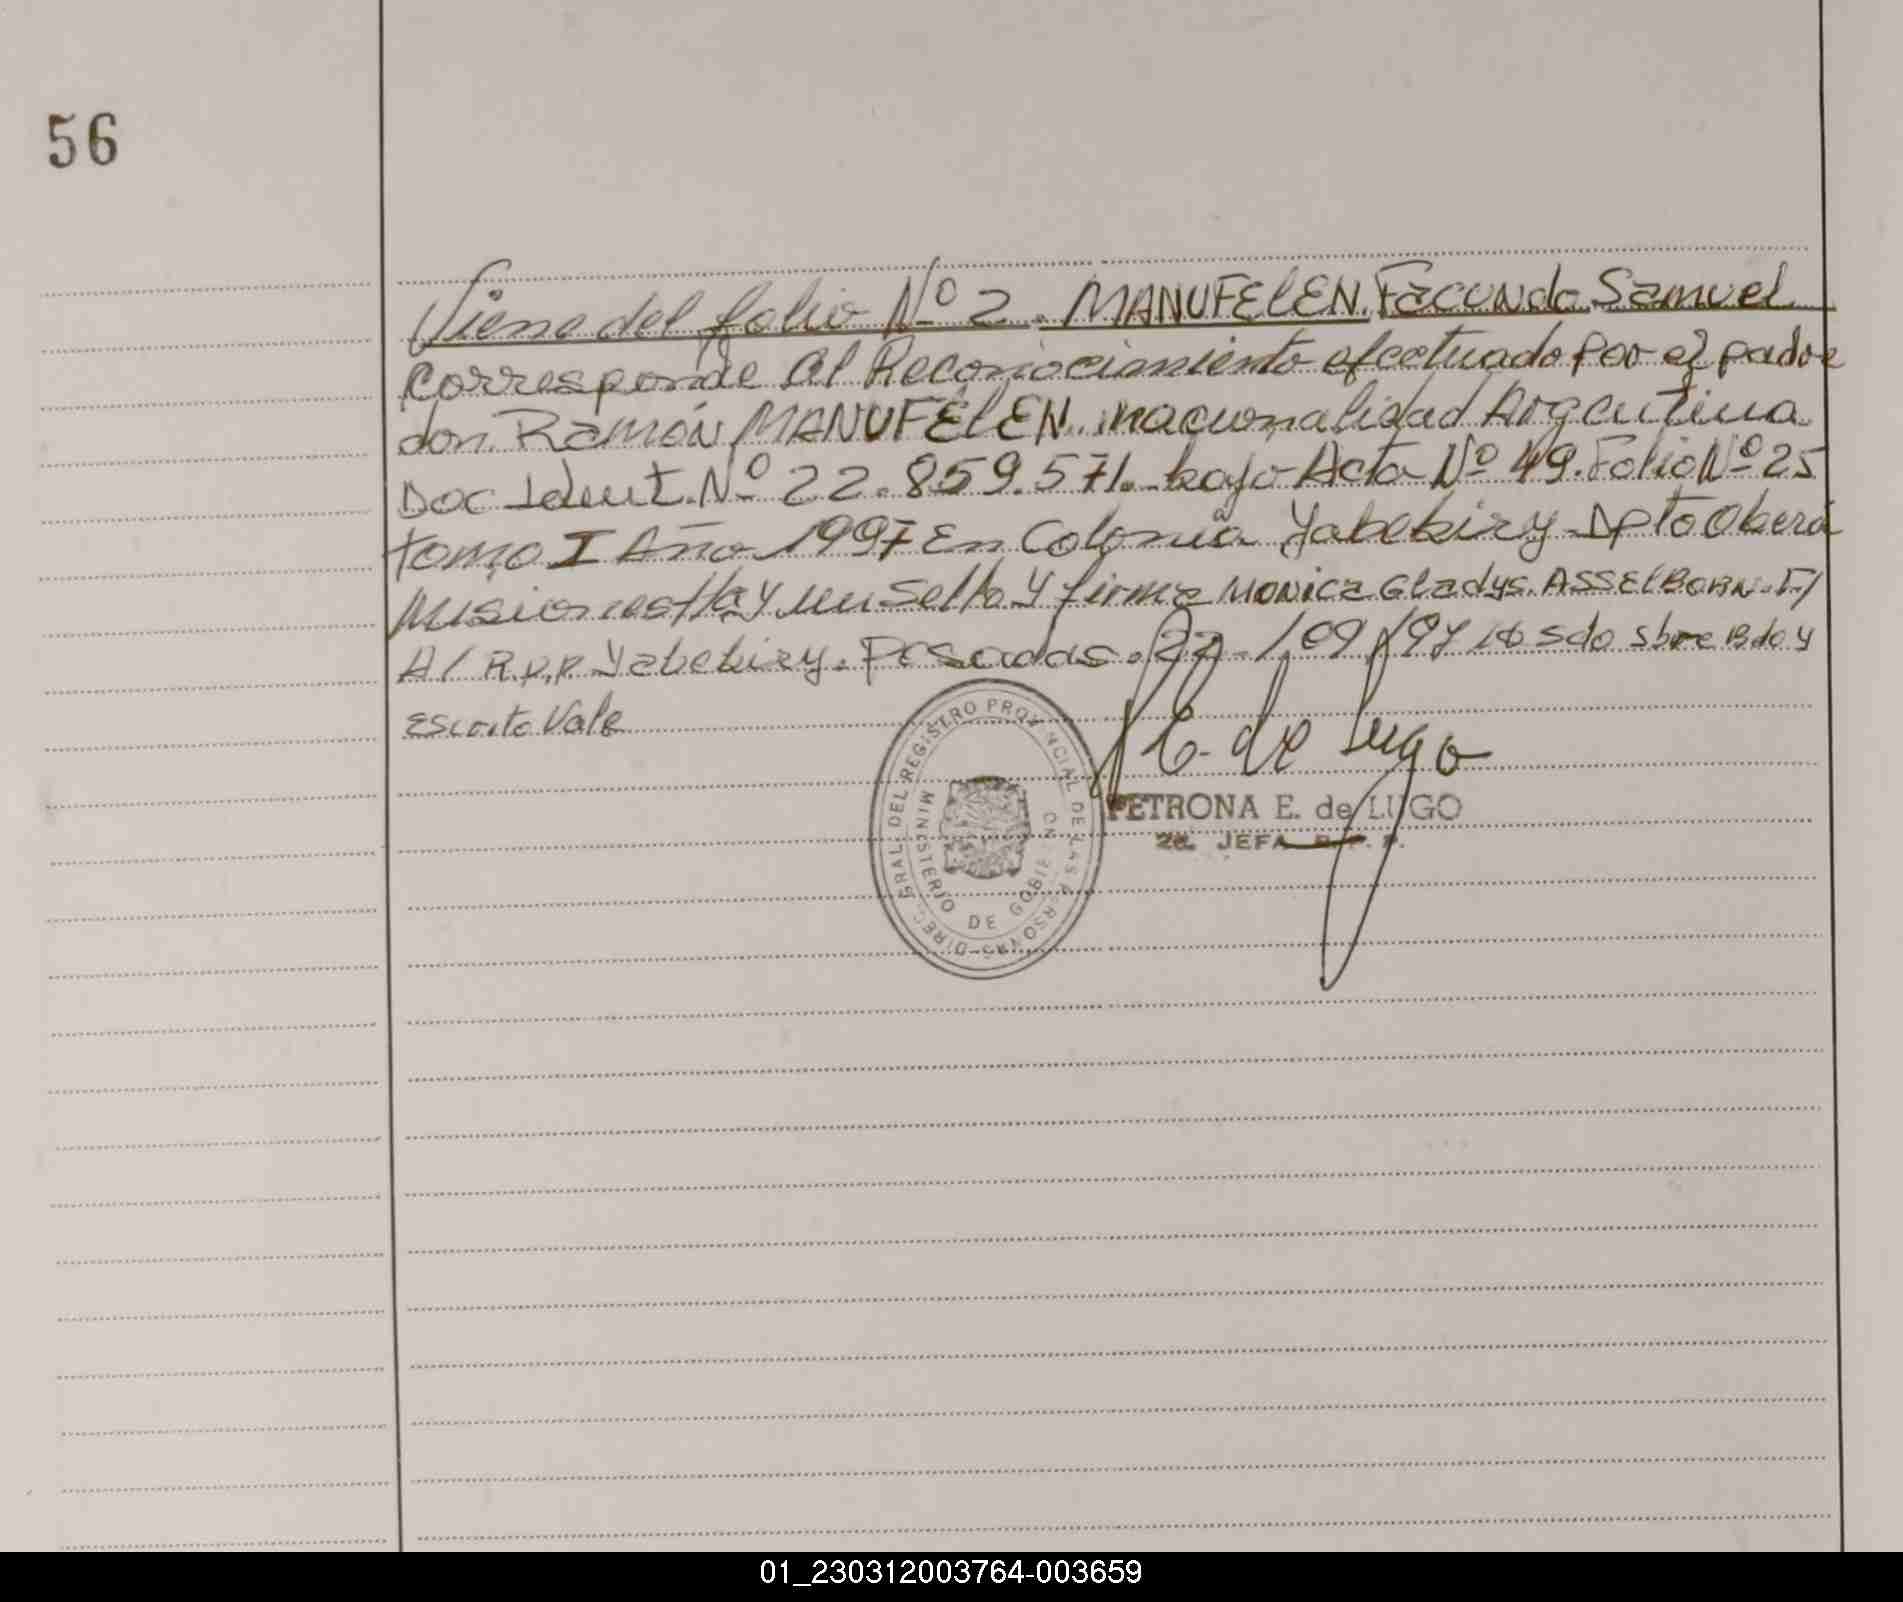 56
Viene del folio Nº 2. MANUFElEN. Facundo Samuel
Corresponde al Reconocimiento efectuado por el padre
don Ramón MANUFÉlEN. nacionalidad Argentina
Doc Ident. Nº 22.859.571. bajo Acta Nº 49. Folio Nº 25
tomo I Año 1997 En Colonia Yabebiry Dpto Oberá
Misiones Hay un Sello y firma Monica Gladys. ASSElBORN. F/
A/ R.P.P. Yabebiry. Posadas. 22 / 09 / 97 sdo sbre Bdo y
Escrito Vale
DIREC. GRAL DEL REGISTRO PROVINCIAL DE LAS PERSONAS
MINISTERIO DE GOBIERNO
E. de Lugo
PETRONA E. de LUGO
2a. JEFA R.P.P.
01_230312003764-003659